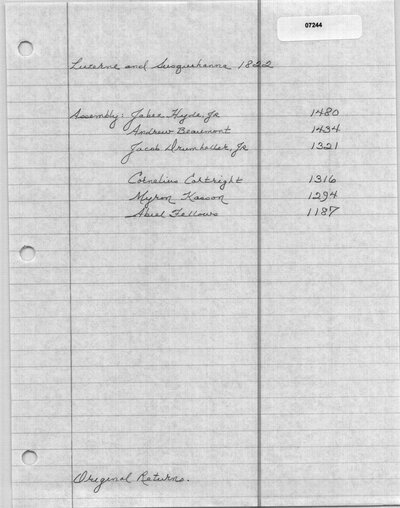 07244
Luzerne and Susquehanna 1822
Assembly: Jabez Hyde, Jr 1480
Andrew Beaumont 1434
Jacob Drumheller, Jr 1321
Cornelius Cortright 1316
Myron Kasson 1294
Abiel Fellows 1187
Original Returns.